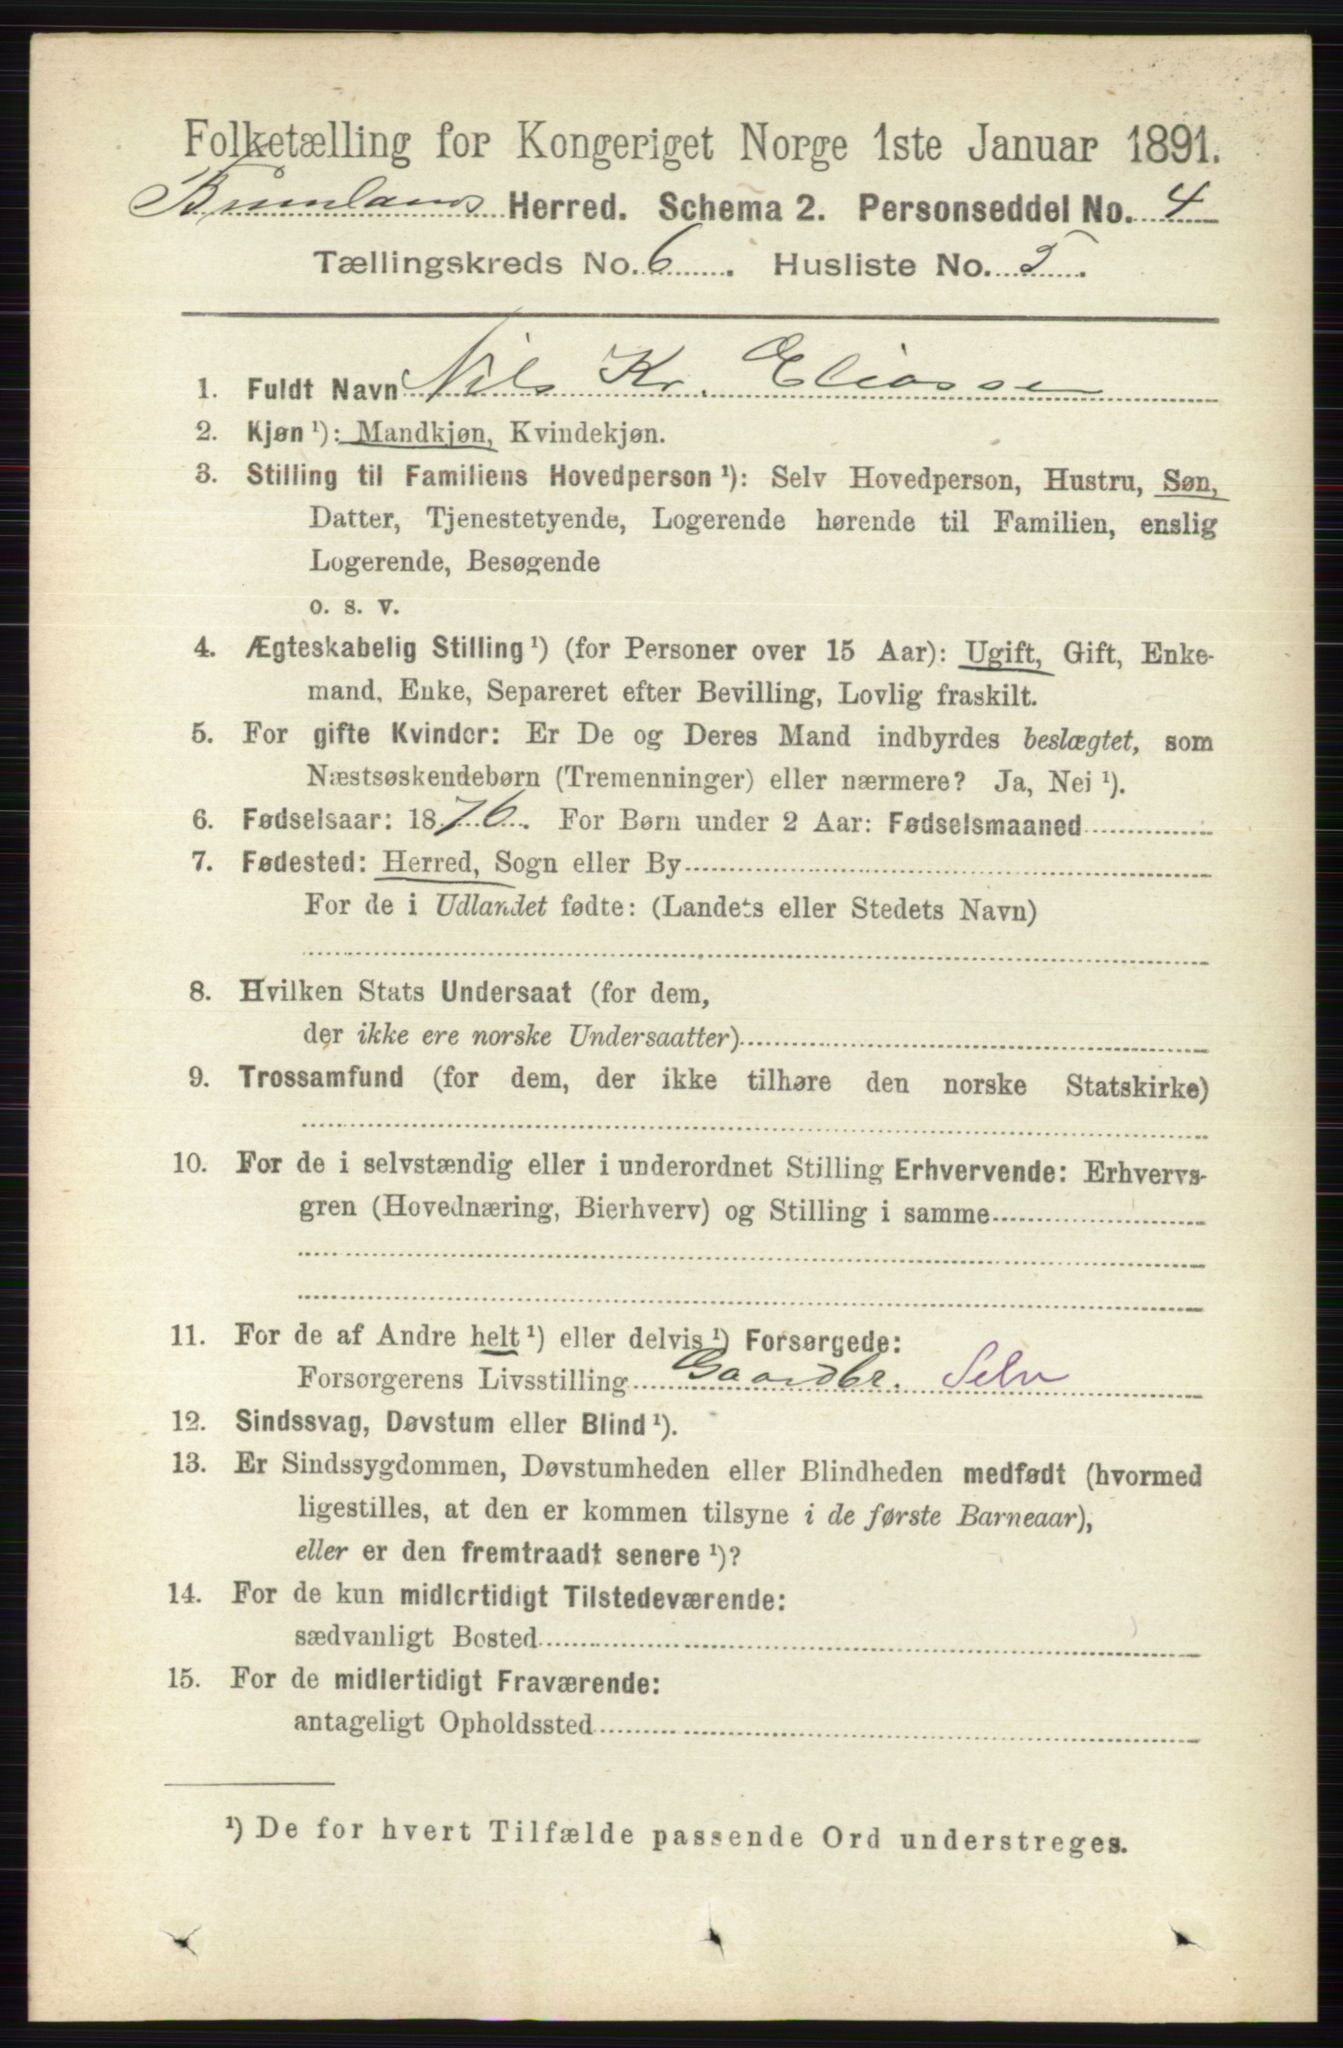 Folketælling for Kongeriget Norge 1ste Januar 1891.
Brunlanes Herred. Schema 2. Personseddel No. 4
Tællingskreds No. 6. Husliste No. 5.
1. Fuldt Navn Nils Kr. Eliassen
2. Kjøn ¹): Mandkjøn, Kvindekjøn.
3. Stilling til Familiens Hovedperson ¹): Selv Hovedperson, Hustru, Søn,
Datter, Tjenestetyende, Logerende hørende til Familien, enslig
Logerende, Besøgende
o. s. v.
4. Ægteskabelig Stilling ¹) (for Personer over 15 Aar): Ugift, Gift, Enke-
mand, Enke, Separeret efter Bevilling, Lovlig fraskilt.
5. For gifte Kvinder: Er De og Deres Mand indbyrdes beslægtet, som
Næstsøskendebørn (Tremenninger) eller nærmere? Ja, Nei ¹).
6. Fødselsaar: 1876. For Børn under 2 Aar: Fødselsmaaned
7. Fødested: Herred, Sogn eller By
For de i Udlandet fødte: (Landets eller Stedets Navn)
8. Hvilken Stats Undersaat (for dem,
der ikke ere norske Undersaatter)
9. Trossamfund (for dem, der ikke tilhøre den norske Statskirke)
10. For de i selvstændig eller i underordnet Stilling Erhvervende: Erhvervs-
gren (Hovednæring, Bierhverv) og Stilling i samme
11. For de af Andre helt ¹) eller delvis ¹) Forsørgede:
Forsørgerens Livsstilling Gaardbr. Selv
12. Sindssvag, Døvstum eller Blind ¹).
13. Er Sindssygdommen, Døvstumheden eller Blindheden medfødt (hvormed
ligestilles, at den er kommen tilsyne i de første Barneaar),
eller er den fremtraadt senere ¹)?
14. For de kun midlertidigt Tilstedeværende:
sædvanligt Bosted
15. For de midlertidigt Fraværende:
antageligt Opholdssted
¹) De for hvert Tilfælde passende Ord understreges.